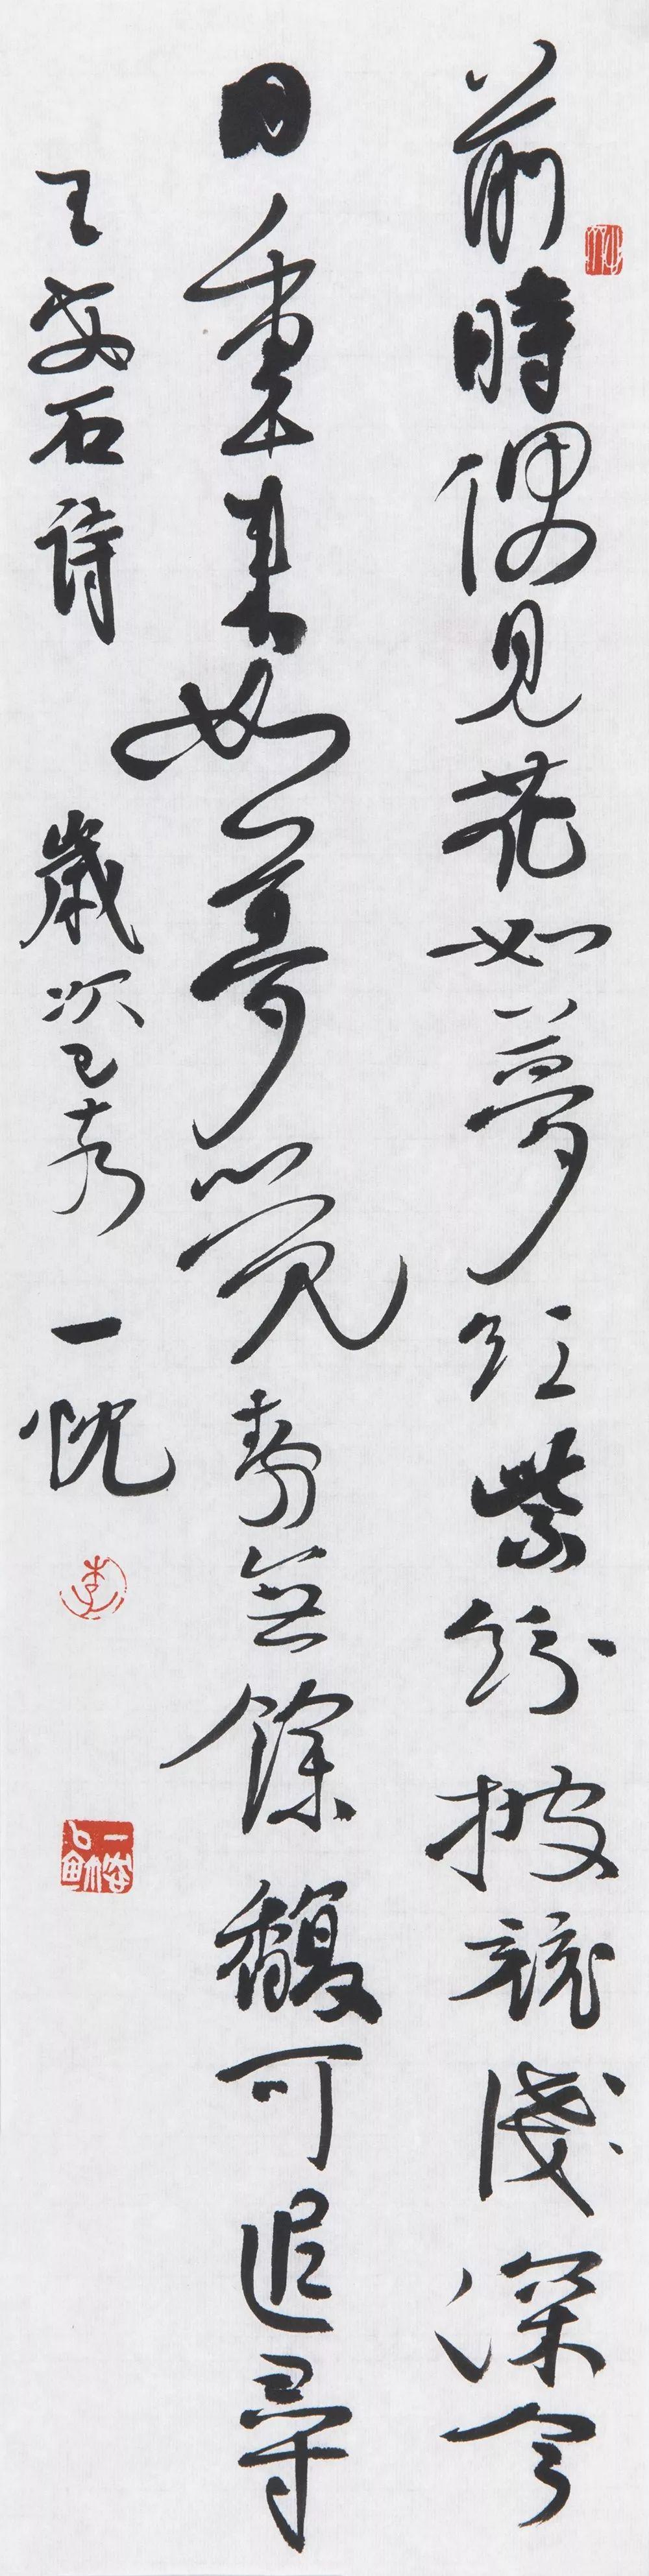 前時偶見花如夢紅紫紛披競淺深今
日重來如夢覺靜無餘馥可追尋
王安石詩 歲次 一忱
李